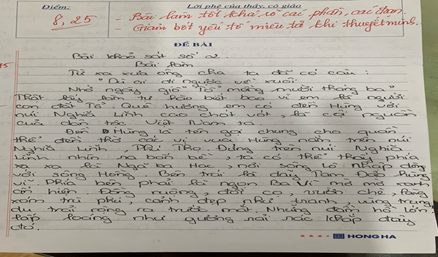 Điểm:
Lời phê của thầy, cô giáo
8,25
- Bài làm tốt khá rõ các phần, các đoạn.
- Giảm bớt yếu tố miêu tả khi thuyết minh.
ĐỀ BÀI
Bài khảo sát số 2
Bài làm
Từ xa xưa ông cha ta đã có câu:
" Dù ai đi ngược về xuôi
Nhớ ngày giỗ Tổ mùng mười tháng ba"
Thật vậy bốn
con đất Tổ Quê hương em có đền Hùng với
núi Nghĩa Lĩnh cao chót vót, là cội nguồn
của dân tộc Việt Nam ta
Đền Hùng là tên gọi chung cho quần
thể đền thờ các vị vua Hùng nằm trên núi
Nghĩa Lĩnh, Phú Thọ. Đứng trên núi Nghĩa
Lĩnh nhìn ra bao la, ta có thể thấy phía
xa xa là Ngã Ba Hạc, nơi sông Lô nhập dòng
với sông Hồng. Bên trái là dãy Tam Đảo hùng
vĩ. Phía bên phải là ngọn Ba Vì mờ mờ xanh
ẩn hiện. Đồng ruộng, đồi cọ, vườn chè, làng
xóm trù phú, cảnh đẹp như tranh, vùng trung
du trải rộng ra trước mắt. Những đầm hồ lớn
lấp loáng như gương rải rác khắp đây
đó.
HONG HA